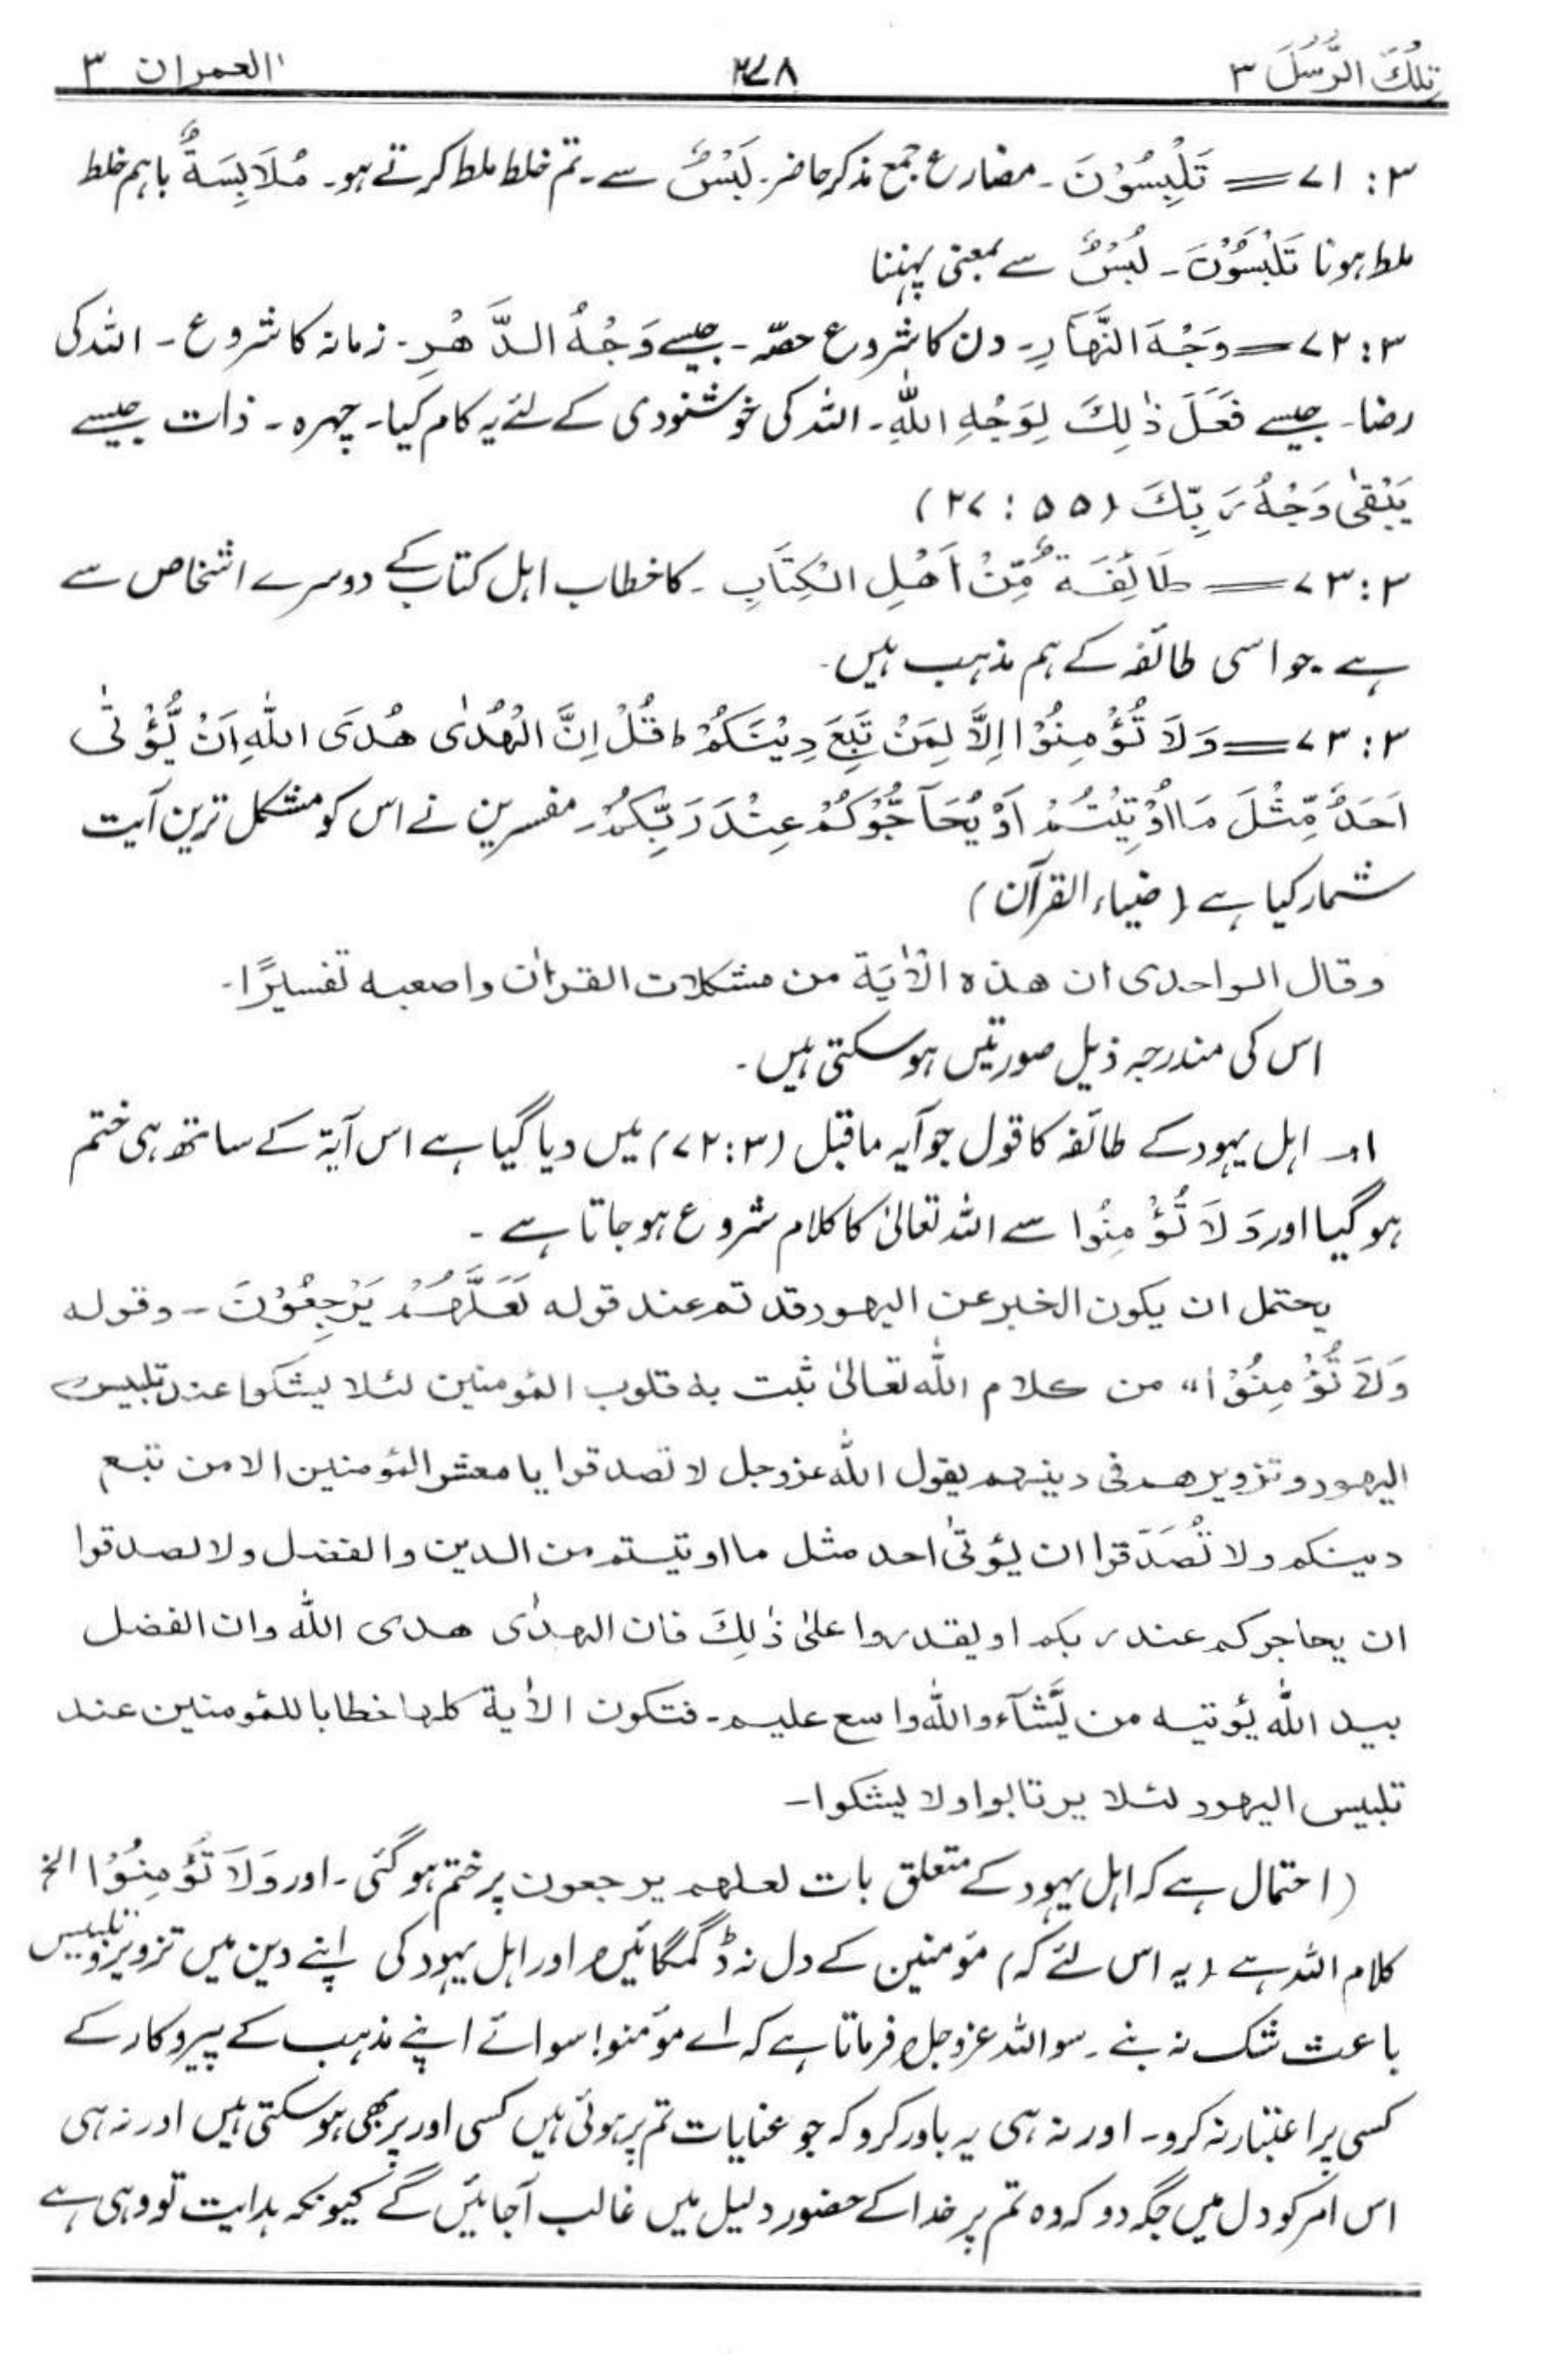 تِلْكَ الرُّسُلُ ۳ ۲۷۸ اٰلعمران ۳
۳ : ۷۱ = تَلْبِسُوْنَ ۔ مضارع جمع مذکر حاضر۔ لَبْسٌ سے۔ تم خلط ملط کرتے ہو۔ مُلَابَسَۃٌ باہم خلط
ملط ہونا تَلْبَسُوْنَ ۔ لُبْسٌ سے بمعنی پہننا
۳ : ۷۲ = وَجْہَ النَّھَارِ ۔ دن کا شروع حصّہ ۔ جیسے وَجْہُ الدَّھْرِ ۔ زمانہ کا شروع ۔ اللہ کی
رضا۔ جیسے فَعَلَ ذٰلِكَ لِوَجْہِ اللّٰہِ ۔ اللہ کی خوشنودی کے لئے یہ کام کیا۔ چہرہ ۔ ذات جیسے
يَبْقٰى وَجْہُ رَبِّكَ (۵۵ : ۲۷)
۳ : ۷۳ = طَائِفَۃٌ مِّنْ اَھْلِ الْکِتَابِ ۔ کا خطاب اہل کتاب کے دوسرے اشخاص سے
ہے ۔ جو اسی طائفہ کے ہم مذہب ہیں ۔
۳ : ۷۳ = وَلَا تُؤْمِنُوْا اِلَّا لِمَنْ تَبِعَ دِيْنَكُمْ ط قُلْ اِنَّ الْھُدٰى ھُدَى اللّٰہِ اَنْ يُّؤْتٰى
اَحَدٌ مِّثْلَ مَا اُوْتِيْتُمْ اَوْ يُحَآجُّوْكُمْ عِنْدَ رَبِّكُمْ ۔ مفسرین نے اس کو مشکل ترین آیت
شمار کیا ہے (ضیاء القرآن)
وقال الواحدی ان ھذہ الْاٰيَۃ من مشکلات القراٰن واصعبہ تفسیرًا ۔
اس کی مندرجہ ذیل صورتیں ہو سکتی ہیں ۔
۱ـ اہل یہود کے طائفہ کا قول جو آیہ ماقبل (۳ : ۷۲) میں دیا گیا ہے اس آیۃ کے ساتھ ہی ختم
ہو گیا اور وَلَا تُؤْمِنُوا سے اللہ تعالیٰ کا کلام شروع ہو جاتا ہے ۔
يحتمل ان يكون الخبر عن اليھود قد تم عند قولہ لَعَلَّھُمْ يَرْجِعُوْنَ ۔ وقولہ
وَلَا تُؤْمِنُوْا“ من كلام اللّٰہ تعالىٰ ثبت بہ قلوب المؤمنين لئلا يشكوا عند تلبيس
اليھود و تزويرھم فی دينھم يقول اللّٰہ عزوجل لا تصدقوا يا معشر المؤمنين الا من تبع
دينكم ولا تُصَدّقوا ان يؤتىٰ احد مثل ما اوتيتم من الدين والفضل ولا تصدقوا
ان يحاجوكم عند ربكم او يقدروا علىٰ ذٰلِكَ فان الھدٰى ھدى اللّٰہ وان الفضل
بيد اللّٰہ يؤتيہ من يَّشآء واللّٰہ واسع عليم ۔ فتكون الاٰية كلھا خطابا للمؤمنين عند
تلبيس اليھود لئلا يرتابوا ولا يشكوا ۔
(احتمال ہے کہ اہل یہود کے متعلق بات لعلھم یرجعون پر ختم ہو گئی ۔ اور وَلَا تُؤْمِنُوْا الخ
کلام اللہ ہے (یہ اس لئے کہ) مؤمنین کے دل نہ ڈگمگائیں اور اہل یہود کی اپنے دین میں تزویر و تلبیس
باعث شک نہ بنے ۔ سو اللہ عزوجل فرماتا ہے کہ اے مؤمنو! سوائے اپنے مذہب کے پیروکار کے
کسی پر اعتبار نہ کرو۔ اور نہ ہی یہ باور کرو کہ جو عنایات تم پر ہوئی ہیں کسی اور پر بھی ہو سکتی ہیں اور نہ ہی
اس امر کو دل میں جگہ دو کہ وہ تم پر خدا کے حضور دلیل میں غالب آجائیں گے کیونکہ ہدایت تو وہی ہے